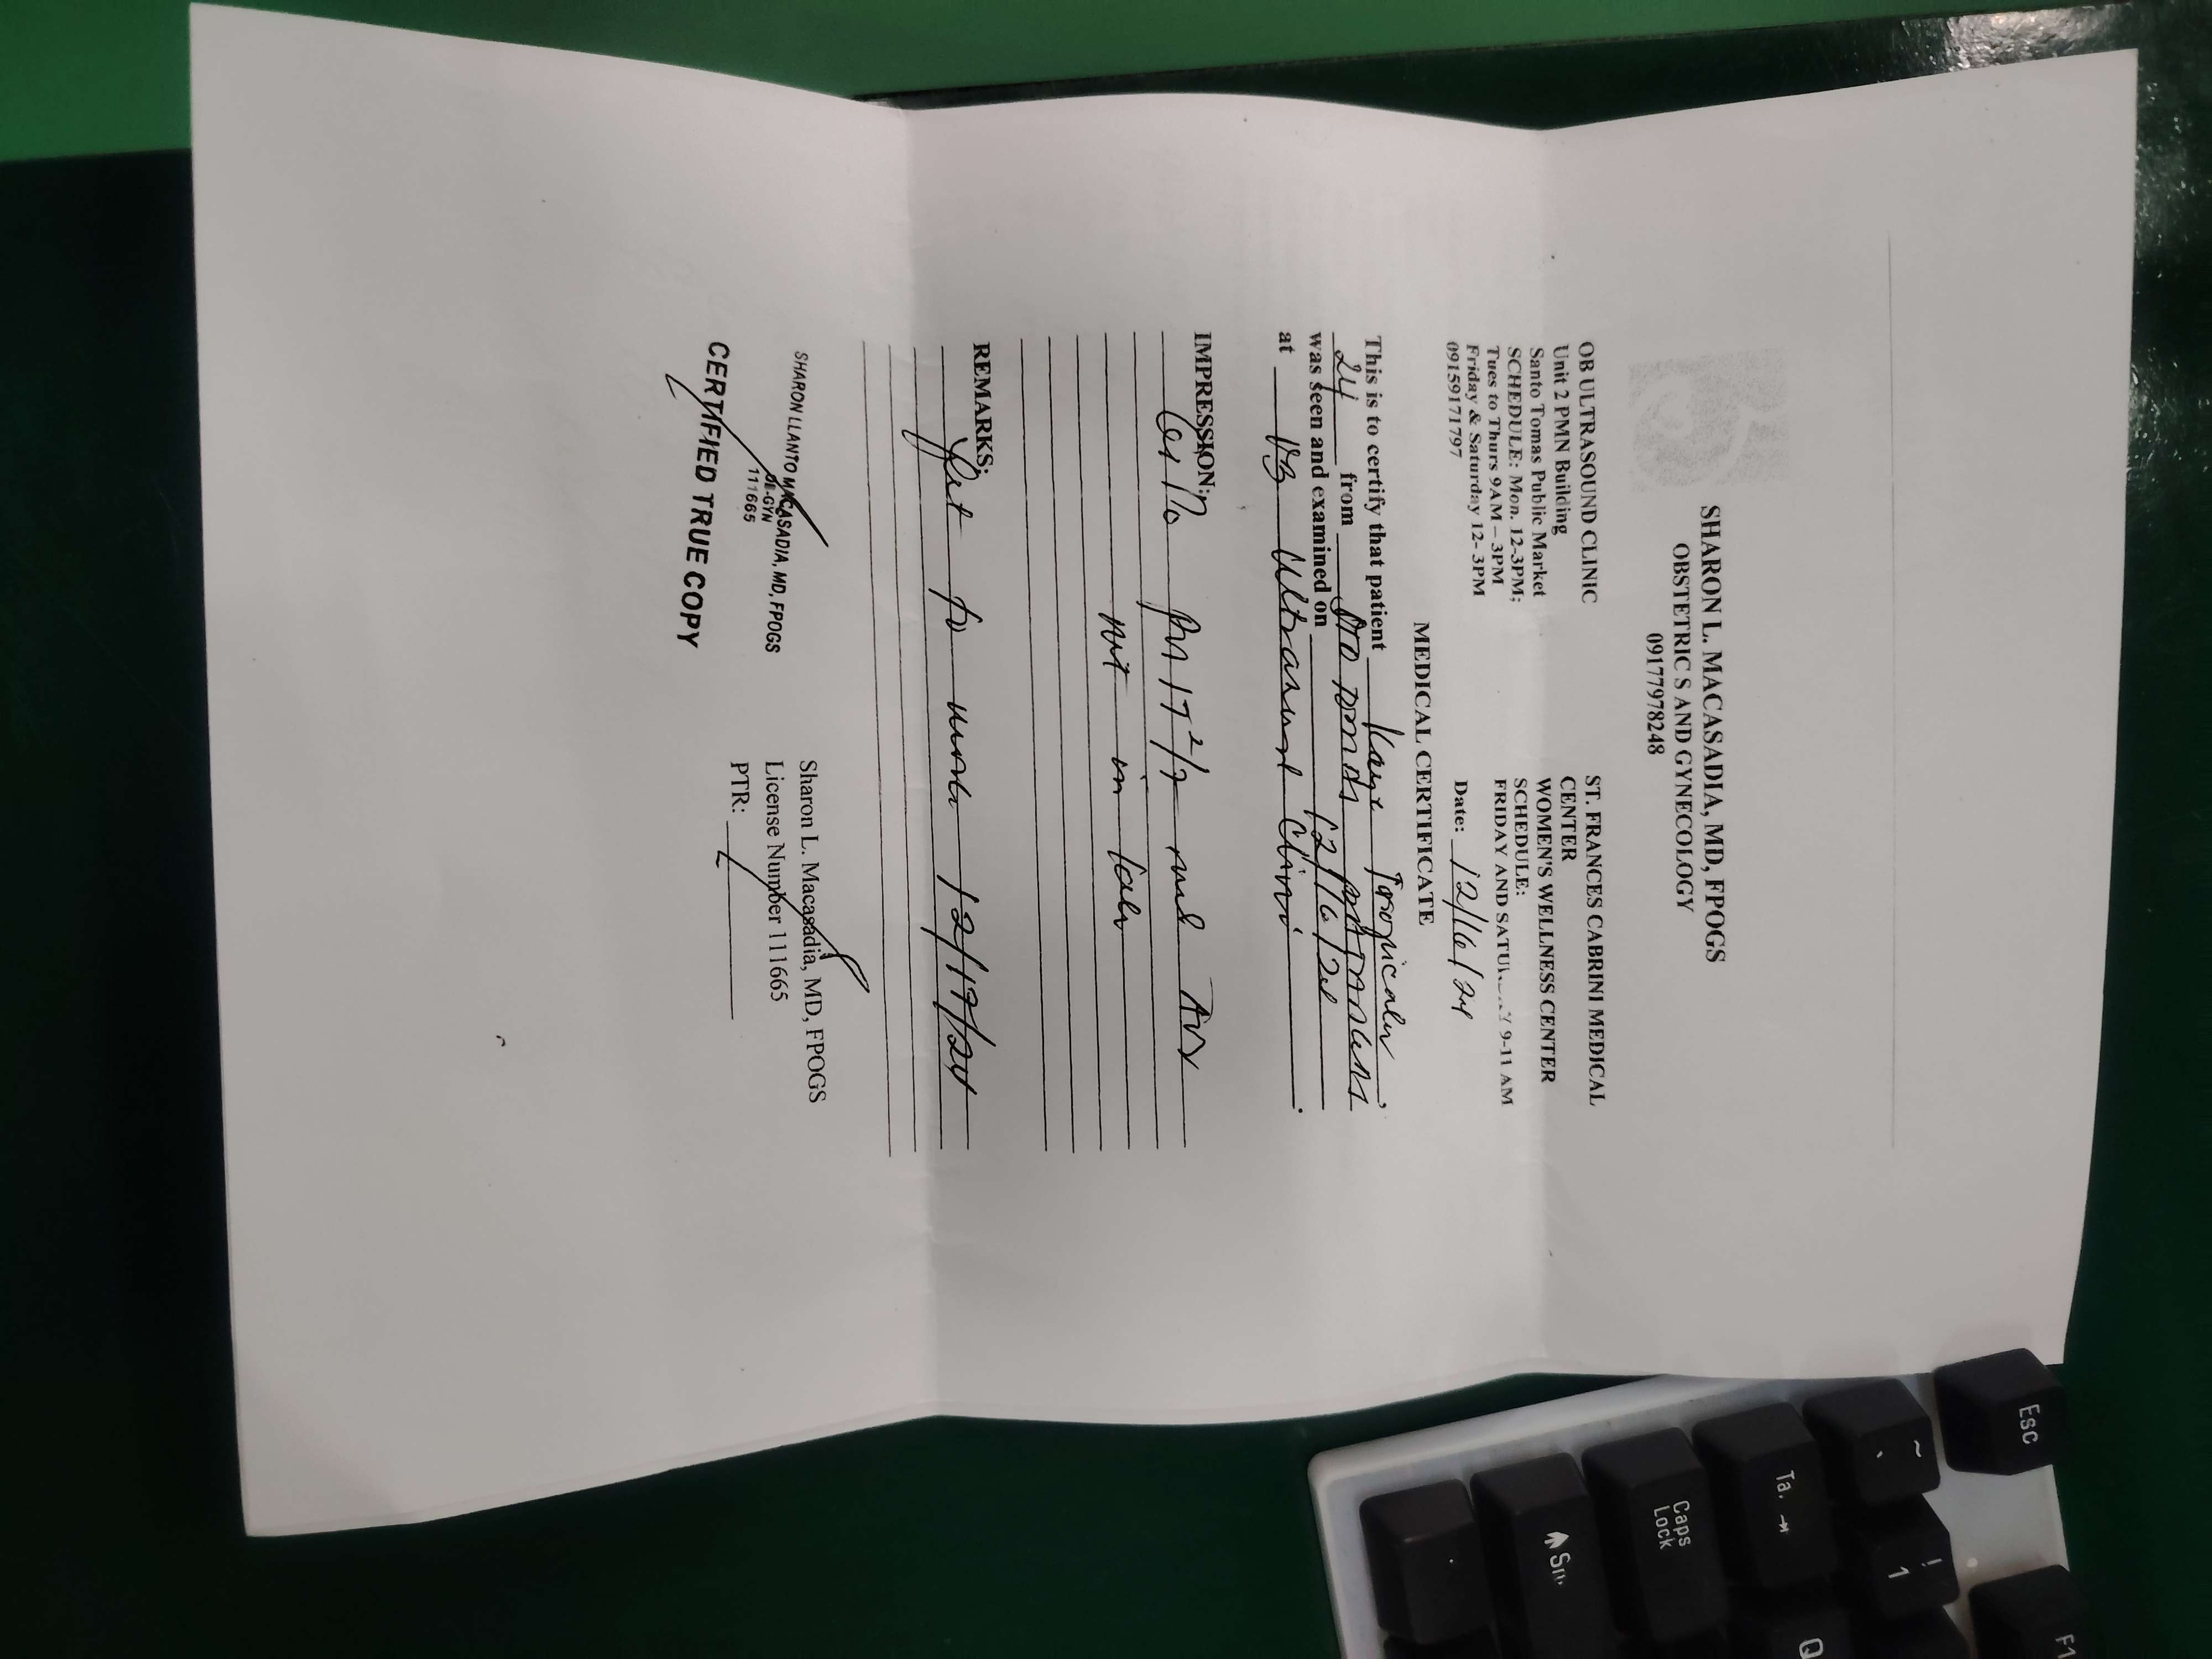 SHARON L. MACASADIA, MD, FPOGS
OBSTETRIC S AND GYNECOLOGY
09177978248
OB ULTRASOUND CLINIC
Unit 2 PMN Building
Santo Tomas Public Market
SCHEDULE: Mon. 12-3PM;
Tues to Thurs 9AM – 3PM
Friday & Saturday 12- 3PM
09159171797
ST. FRANCES CABRINI MEDICAL
CENTER
WOMEN'S WELLNESS CENTER
SCHEDULE:
FRIDAY AND SATU 9-11 AM
Date: 12/16/24
MEDICAL CERTIFICATE
This is to certify that patient Kaye ,
24 from Sto Tomas Batangas
was seen and examined on 12/16/24
at OB Ultrasound Clinic .
IMPRESSION:
PU 17 2/7
not in labor
REMARKS:
to work 12/17/24
SHARON LLANTO MACASADIA, MD, FPOGS
OB-GYN
111665
CERTIFIED TRUE COPY
Sharon L. Macasadia, MD, FPOGS
License Number 111665
PTR:
Esc
~
`
!
1
Caps
Lock
Q
F1